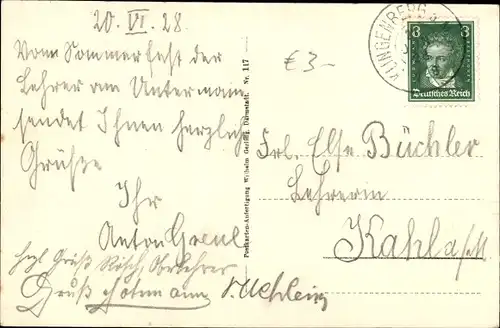 20. VI. 28
Vom Sommerfest der
Lehrer am Untermain
sendet Ihnen herzliche
Grüße
Ihr
Anton
Hzl Gruß Oberlehrer
Gruß
€3-
Postkarten-Anfertigung Wilhelm Gerling, Darmstadt. Nr. 117
KLINGENBERG
3 3
Deutsches Reich
Frl. Else Büchler
Lehrerin
Kahl a/M